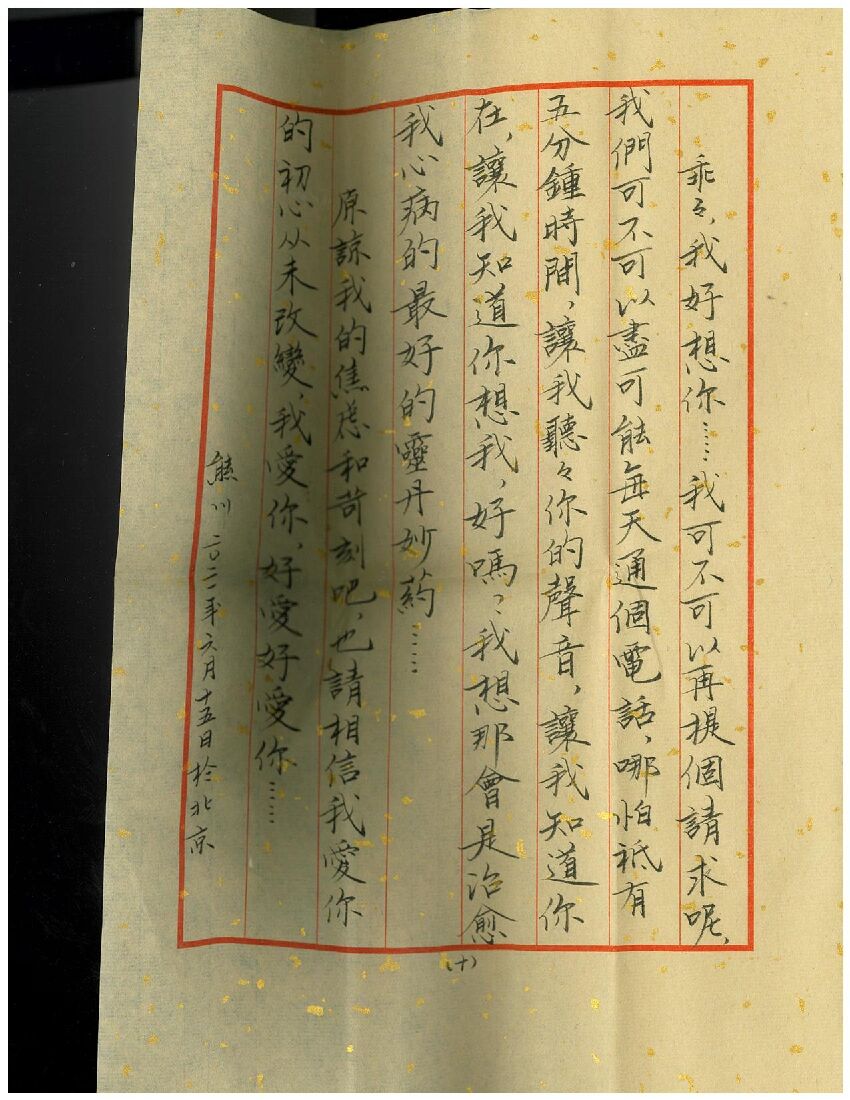 乖々，我好想你……我可不可以再提個請求呢，
我們可不可以盡可能每天通個電話，哪怕衹有
五分鍾時間，讓我聽々你的聲音，讓我知道你
在，讓我知道你想我，好嗎？我想那會是治愈
我心病的最好的靈丹妙葯……
原諒我的焦慮和苛刻吧，也請相信我愛你
的初心从未改變，我愛你，好愛好愛你……
熊川 二〇二二年六月十五日於北京
（十）